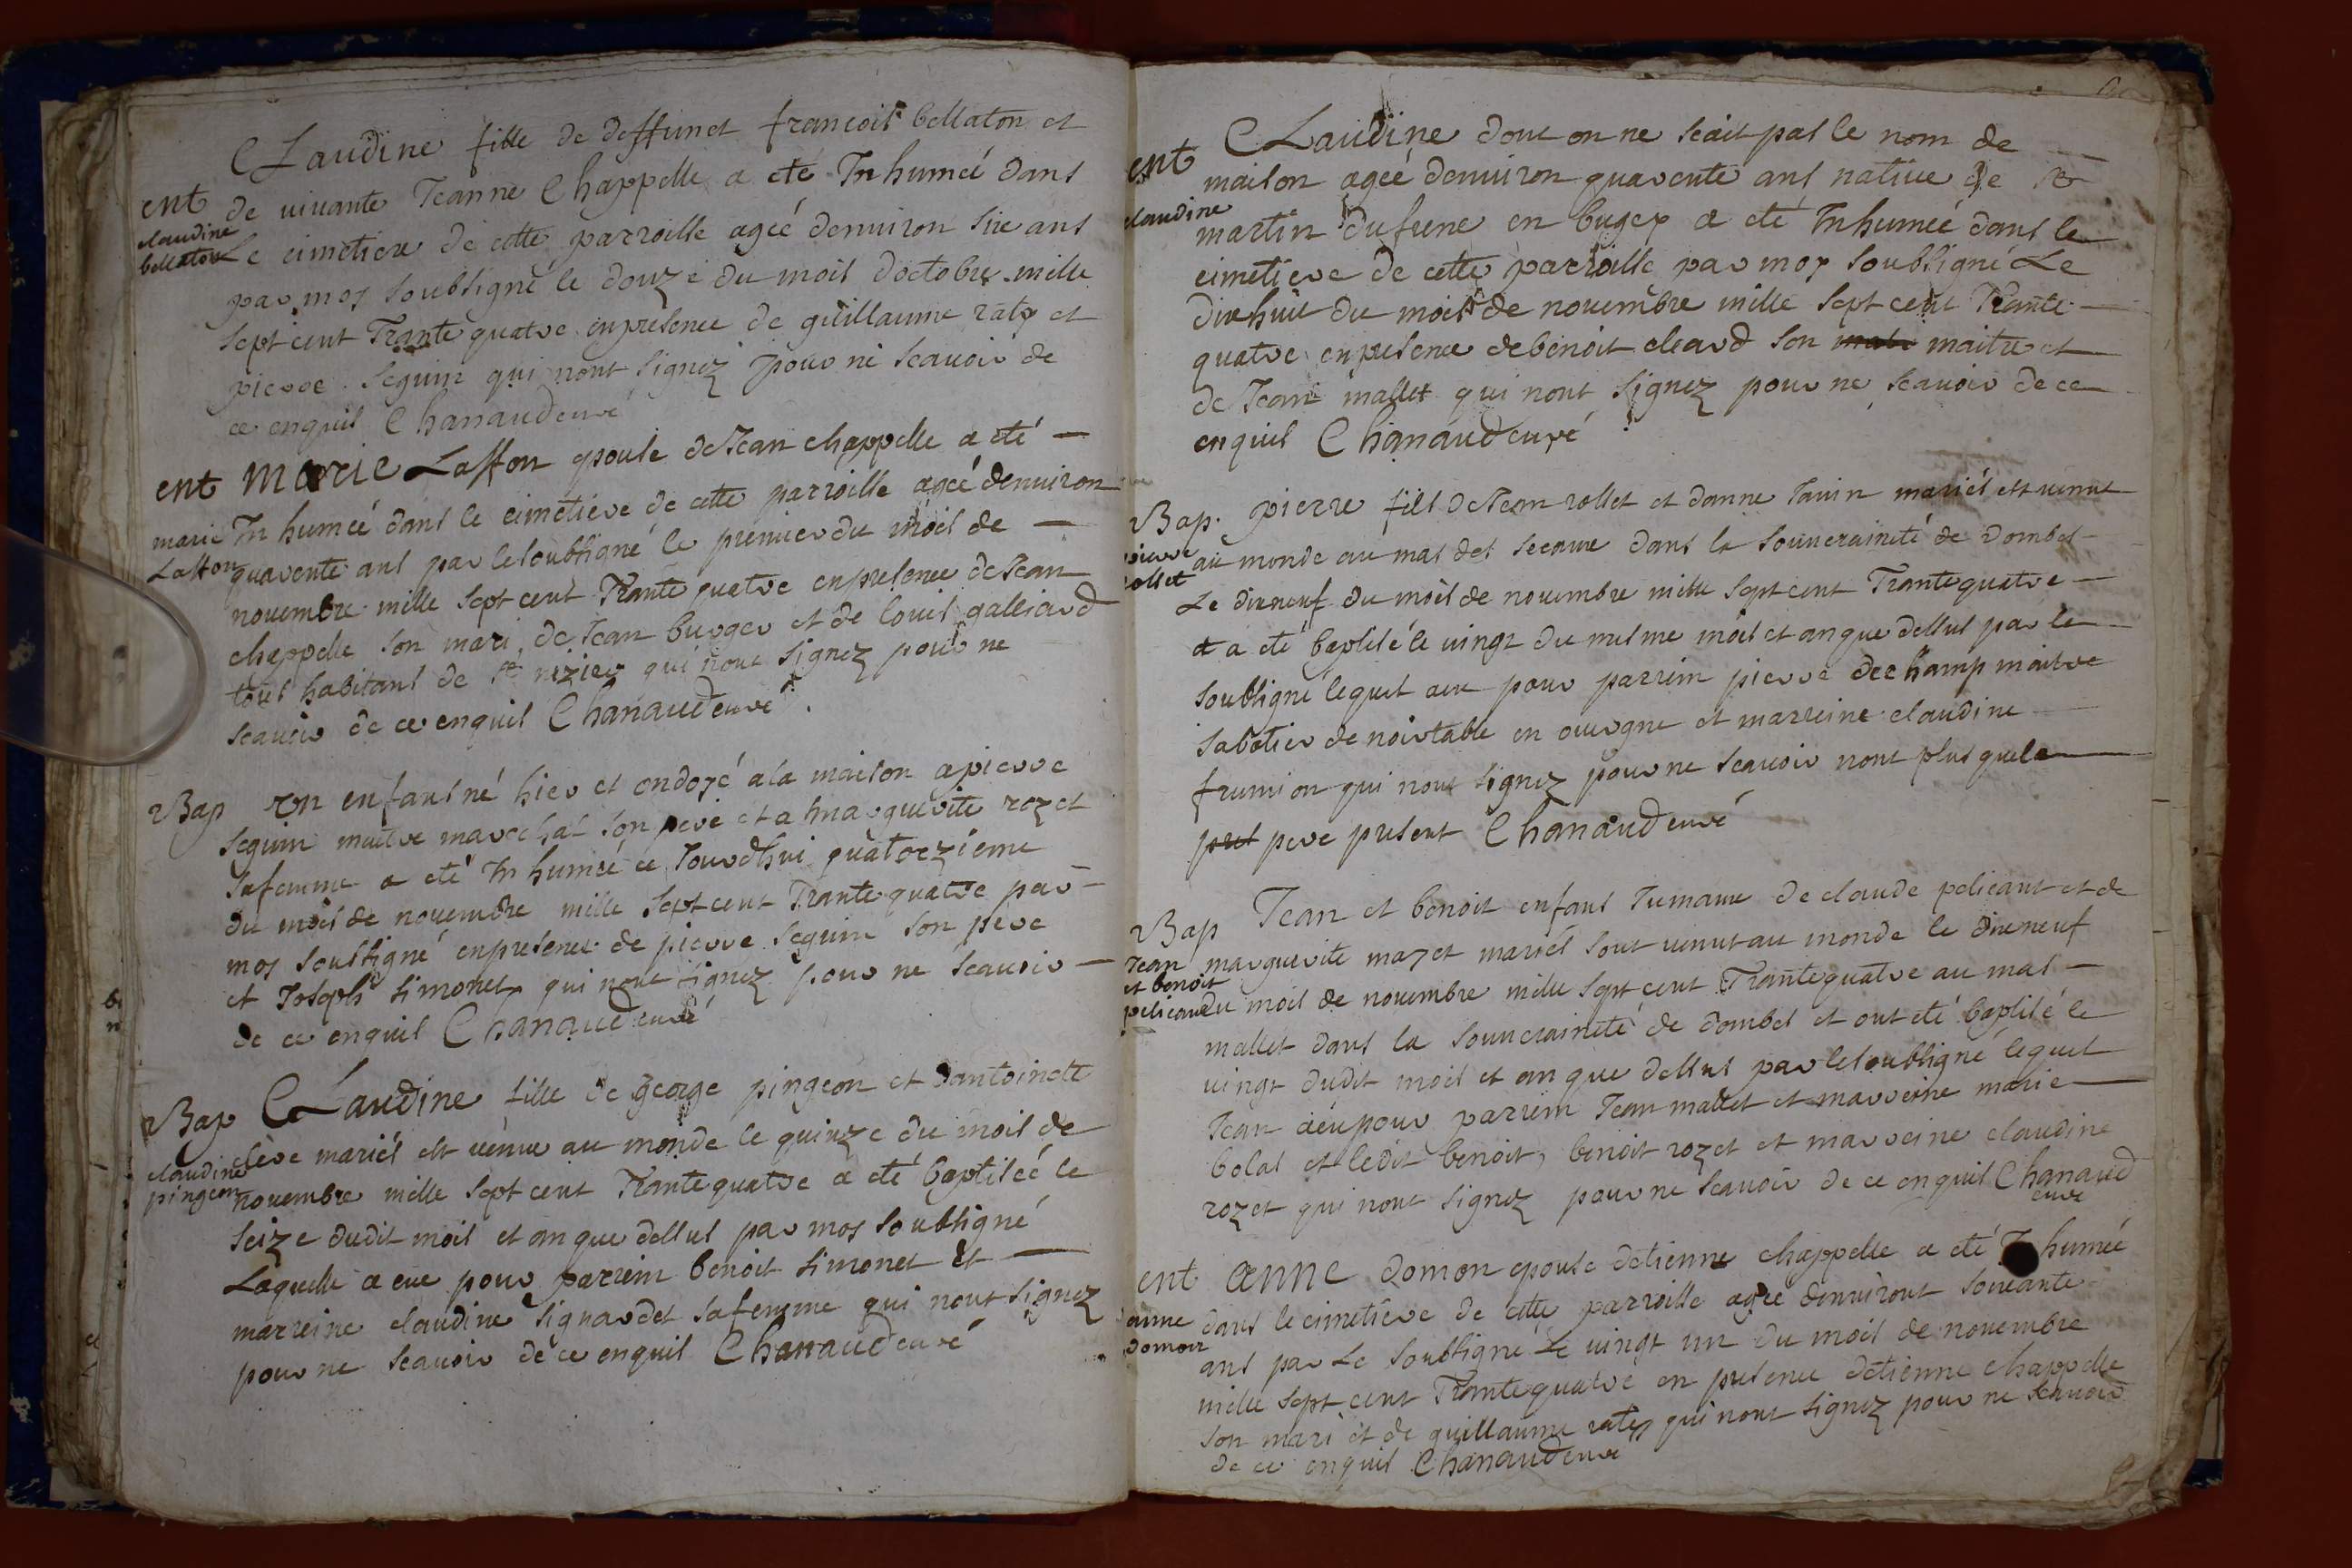 Claudine fille de deffunct francois bellaton et
ent
de vivante Jeanne Chappelle a eté Inhumeé dans
claudine
bellaton
Le cimetiere de cette parroisse ageé denviron sixe ans
par moy soubsigné le douze du mois doctobre mille
sept cent Trante quatre enpresence de guillaume raty et
pierre seguin qui nont signez pour ne scavoir de
ce enquis Chanaudeuvé
ent Marie Laffon epouse de Jean chappelle a eté
marie
Laffon
In humeé dans le cimetiere de cette parroisse ageé denviron
quarente ans par le soubsigné le premier du mois de
novembre mille sept cent Trante quatre enpresence de Jean
chappelle son mari, de Jean burger et de louis galliard
tous habitans de st nizier qui nont signez pour ne
scavoir de ce enquis Chanaudeuvé
Bap un enfans né hier et ondoyé ala maison apierre
seguin maitre marechal son pere et a marguerite rozet
safemme a eté Inhumée ce Jourdhui quatorziéme
du mois de novembre mille sept cent Trante quatre par
moy soubsigné enpresence de pierre seguin son pere
et Joseph simonet qui nont signez pour ne scavoir
de ce enquis Chanaudeuvé
Bap Claudine fille de george pingeon et dantoinette
claudine
pingeon
clere mariés est venue au monde le quinze du mois de
novembre mille sept cent Trante quatre a eté baptiseé le
seize dudit mois et an que dessus par moy soubsigné
Laquelle a eue pour parrein benoit simonet et
marreine claudine signardet safemme qui nont signez
pour ne scavoir de ce enquis Chanaudeuvé
Claudine dont on ne scait pas le nom de
ent
maison ageé denviron quarente ans native de st
claudine
martin dufrene en bugey a eté Inhumeé dans le
cimetiere de cette parroisse par moy soubsigné Le
dixhuit du mois de novembre mille sept cent Trante
quatre enpresence de benoit cleard son maitre et
de Jean mallet qui nont signez pour ne scavoir de ce
enquis Chanaudeuvé
Bap. pierre fils de Jean rollet et danne Janin mariés est venut
pierre
rollet
au monde au mas des secaux dans la souveraineté de Dombes
Le dixneuf du mois de novembre mille sept cent Trante quatre
et a eté baptisé le vingt du mesme mois et an que dessus par le
soubsigné lequel a eu pour parrein pierre dechamp maitre
sabotier de noirtable en auvergne et marreine claudine
frumion qui nont signez pour ne scavoir nont plus que le
pres pere present Chanaudeuvé
Bap Jean et benoit enfans Jumaux de claude pelicant et de
Jean
et benoit
pelicant
marguerite mazet mariés sont venut au monde le dixneuf
du mois de novembre mille sept cent Trante quatre au mas
mallet dans la souveraineté de dombes et ont eté baptisé le
vingt dudit mois et an que dessus par le soubsigné lequel
Jean a eu pour parrein Jean mallet et marreine marie
bolas et ledit benoit, benoit rozet et marreine claudine
rozet qui nont signez pour ne scavoir de ce enquis Chanaud
euvé
ent anne domon epouse detienne chappelle a eté Inhumeé
anne
domon
dans le cimetiere de cette parroisse ageé denviront soixante
ans par Le soubsigné Le vingt un du mois de novembre
mille sept cent Trante quatre en presence detienne chappelle
son mari et de guillaume raty qui nont signez pour ne scavoir
de ce enquis Chanaudeuvé